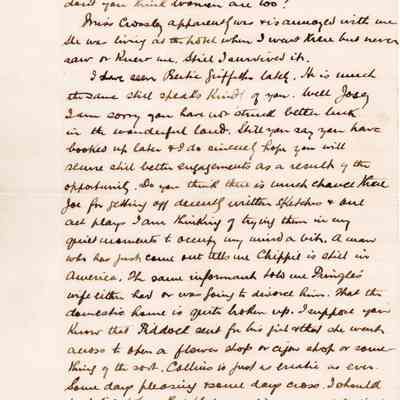 don't you think women are too?
Miss Crossly apparently was & is annoyed with me
She was living at the hotel when I went there but never
saw or knew me. Still I survived it.
I have seen Bertie Griffiths lately. He is much
the same still speaks kindly of you. Well Josey
I am sorry you have not struck better luck
in the wonderful land. Still you say you have
booked up later & I do sincerely hope you will
secure still better engagements as a result of the
opportunity. Do you think there is much chance there
Joe for getting off decently written sketches & one
act plays I am thinking of trying them in my
quiet moments to occupy my mind a bit. A man
who has just come out tells me Chippie is still in
America. The same informant told me Pringle's
wife either had or was going to divorce him. That the
domestic home is quite broken up. I suppose you
know that Piddock sent for his girl & that she went
across to open a flower shop or cigar shop or some
thing of the sort. Collins is just as erratic as ever.
Some days pleasing & some days cross. I should